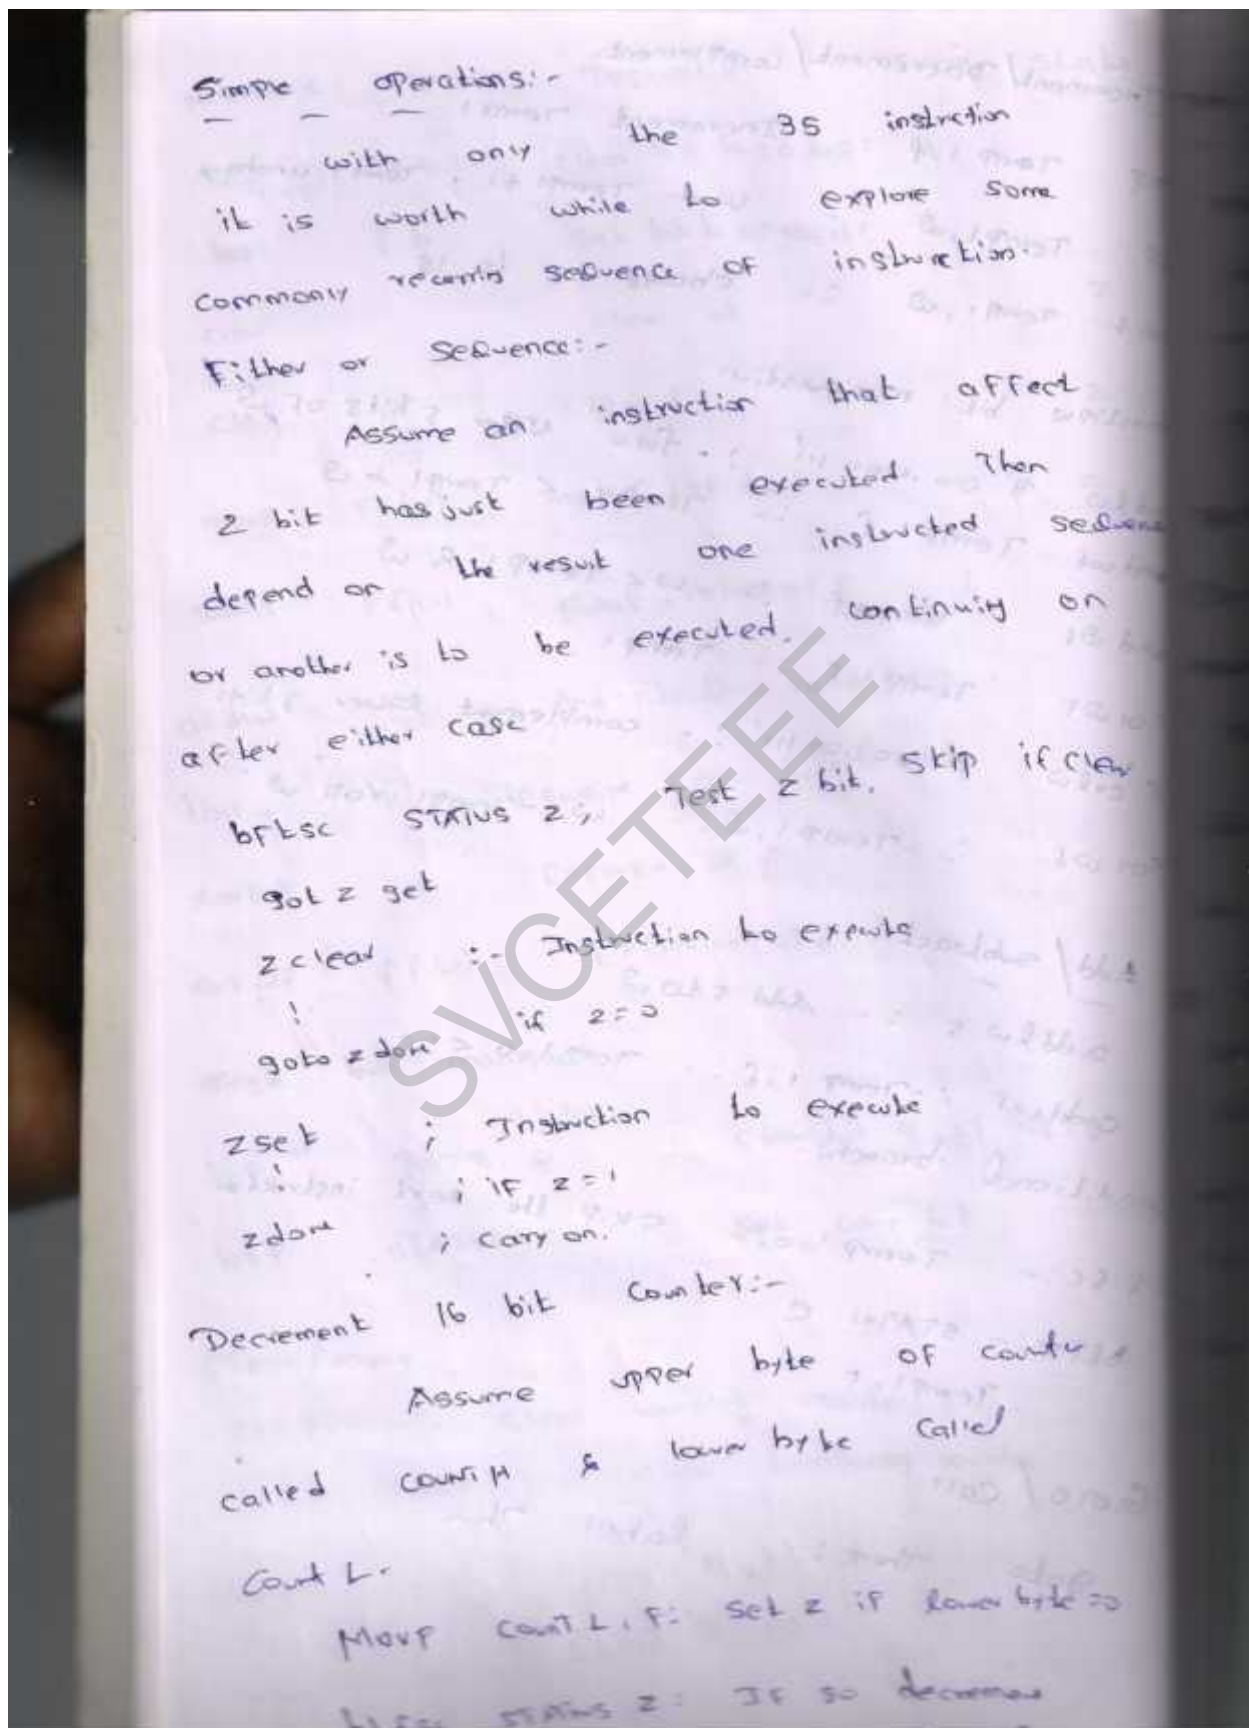 Simple operations:-
with only the 35 instrction
it is worth while to explore some
commonly recurrin sequence of instruction.
Either or Sequence:-
Assume an instruction that affect
Z bit has just been executed. Then
depend on the result one instructed sequence
or another is to be executed. continuing on
after either case
bftsc STATUS Z; Test Z bit. Skip if clear
got z get
z clear :- Instruction to execute
!
if z=0
goto z done
zset ; Instruction to execute
!
; if z=1
zdone ; cary on.
Decrement 16 bit counter:-
Assume upper byte of counter
called COUNTH & lower byte called
Count L.
Movf COUNT L, F: Set Z if lower byte=0
STATUS Z: If so
SVCETEEE